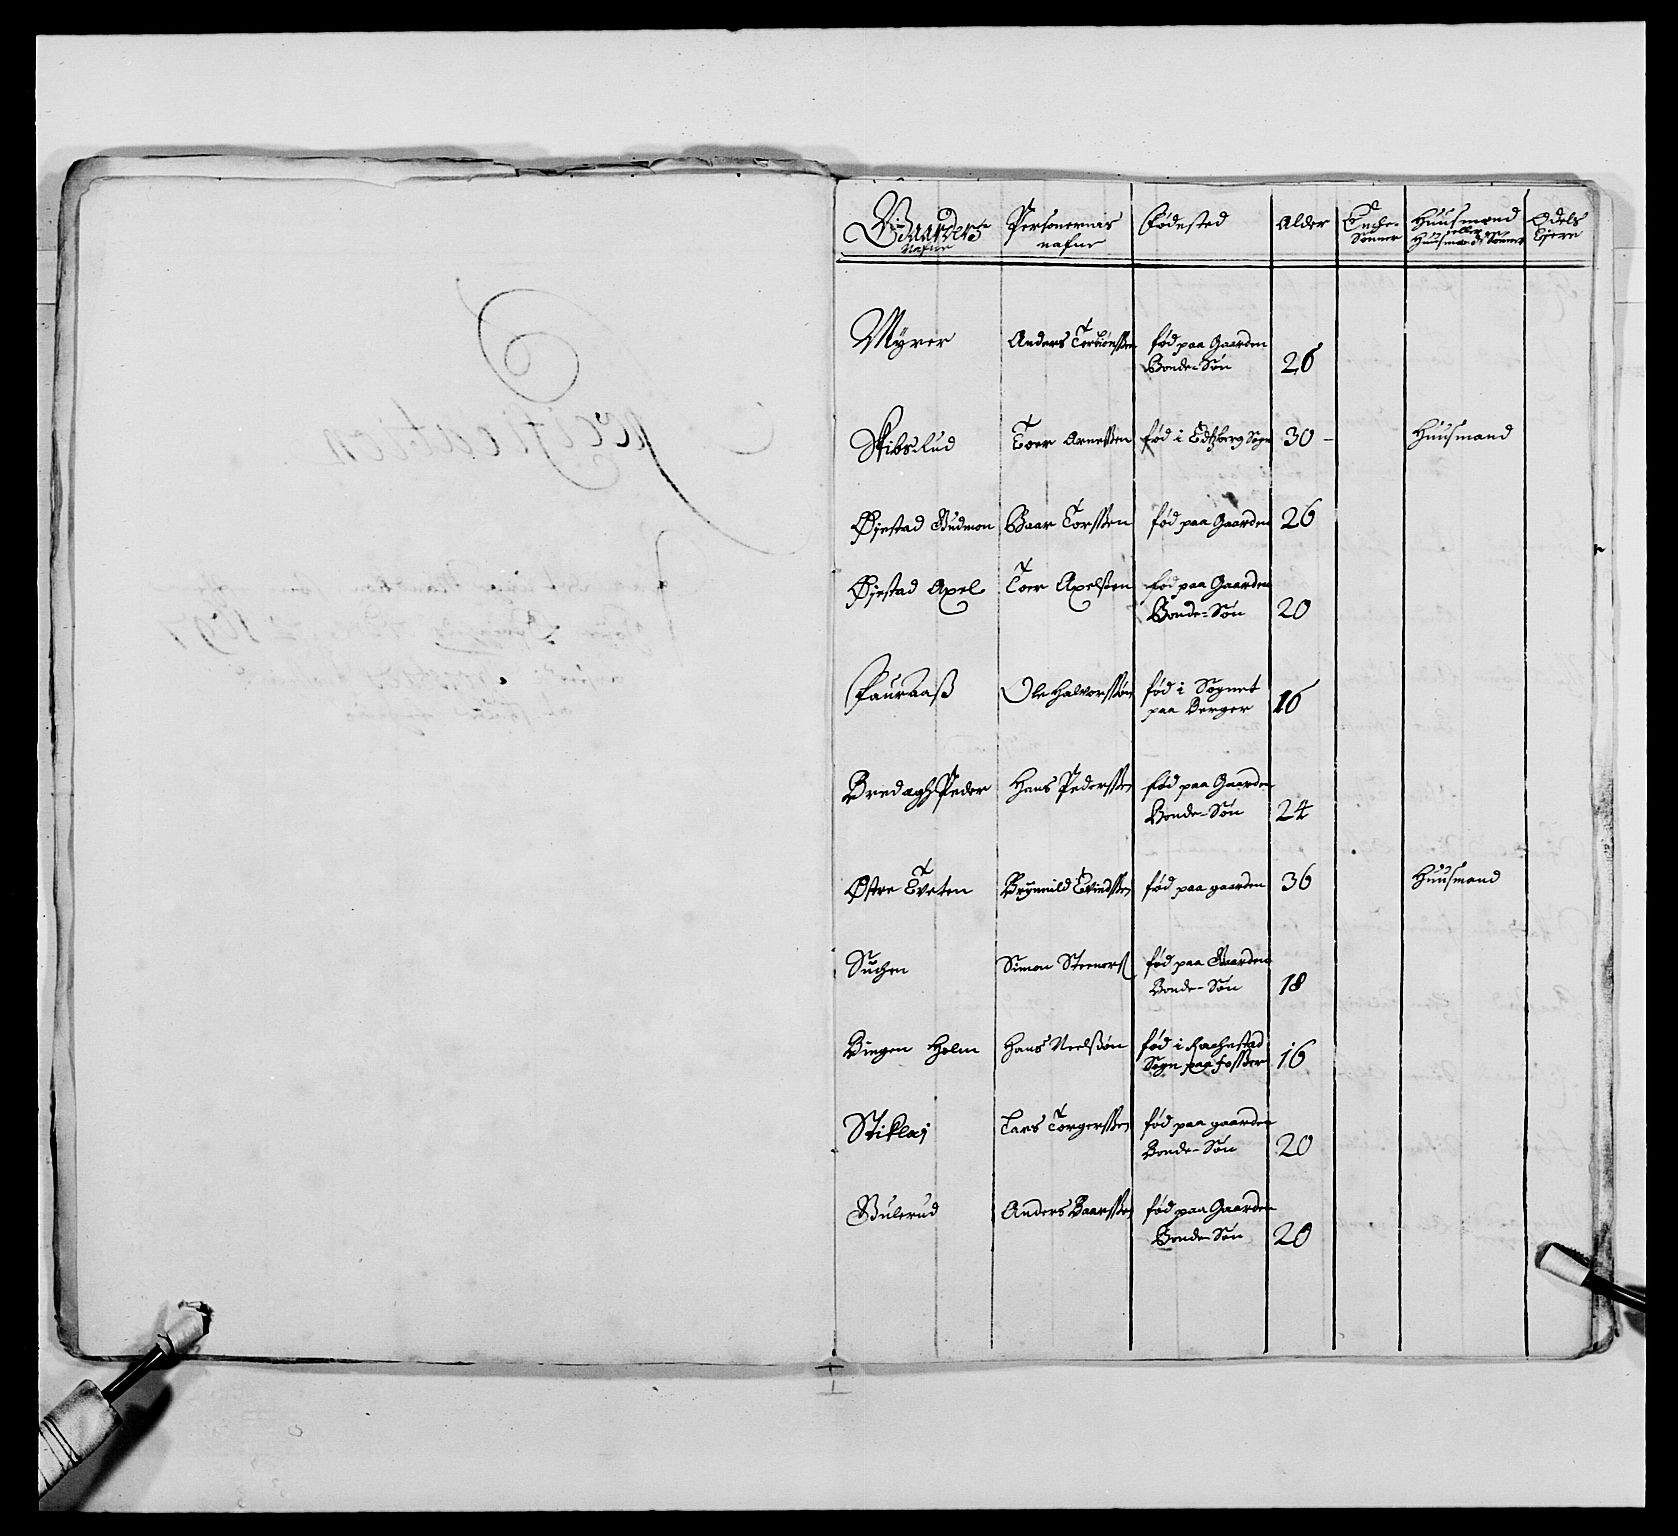 Gaardens Nafne Personernas nafne Fødested Alder Enche-Sønner Huusmænd eller Huusmands Sønner Odels Ejere
Myrer Anders Torbiønssen fød paa Gaarden
Bonde-Søn 26
Skibsrud Toer Arnessen fød i Edtzberg Sogn 30 - Huusmand
Øjestad Gudmon Baar Torssen fød paa Gaarden 26
Øjestad Axel Toer Axelssen fød paa Gaarden
Bonde-Søn 20
Fauraaß Ole Halvorssøn fød i Sognet
paa Berger 16
Bredagh Peder Hans Pederssen fød paa Gaarden
Bonde-Søn 24
Østre Tveten Brynnild Evindssen fød paa gaarden 36 Huusmand
Suchen Simon Steenorß fød paa Gaarden
Bonde-Søn 18
Bingen Holm Hans Neelssøn fød i Rachestad
Sogn paa Fosser 16
Stiklaj Lars Torgerssen fød paa gaarden
Bonde-Søn 20
Gulerud Anders Baarssen fød paa Gaarden
Bonde-Søn 20